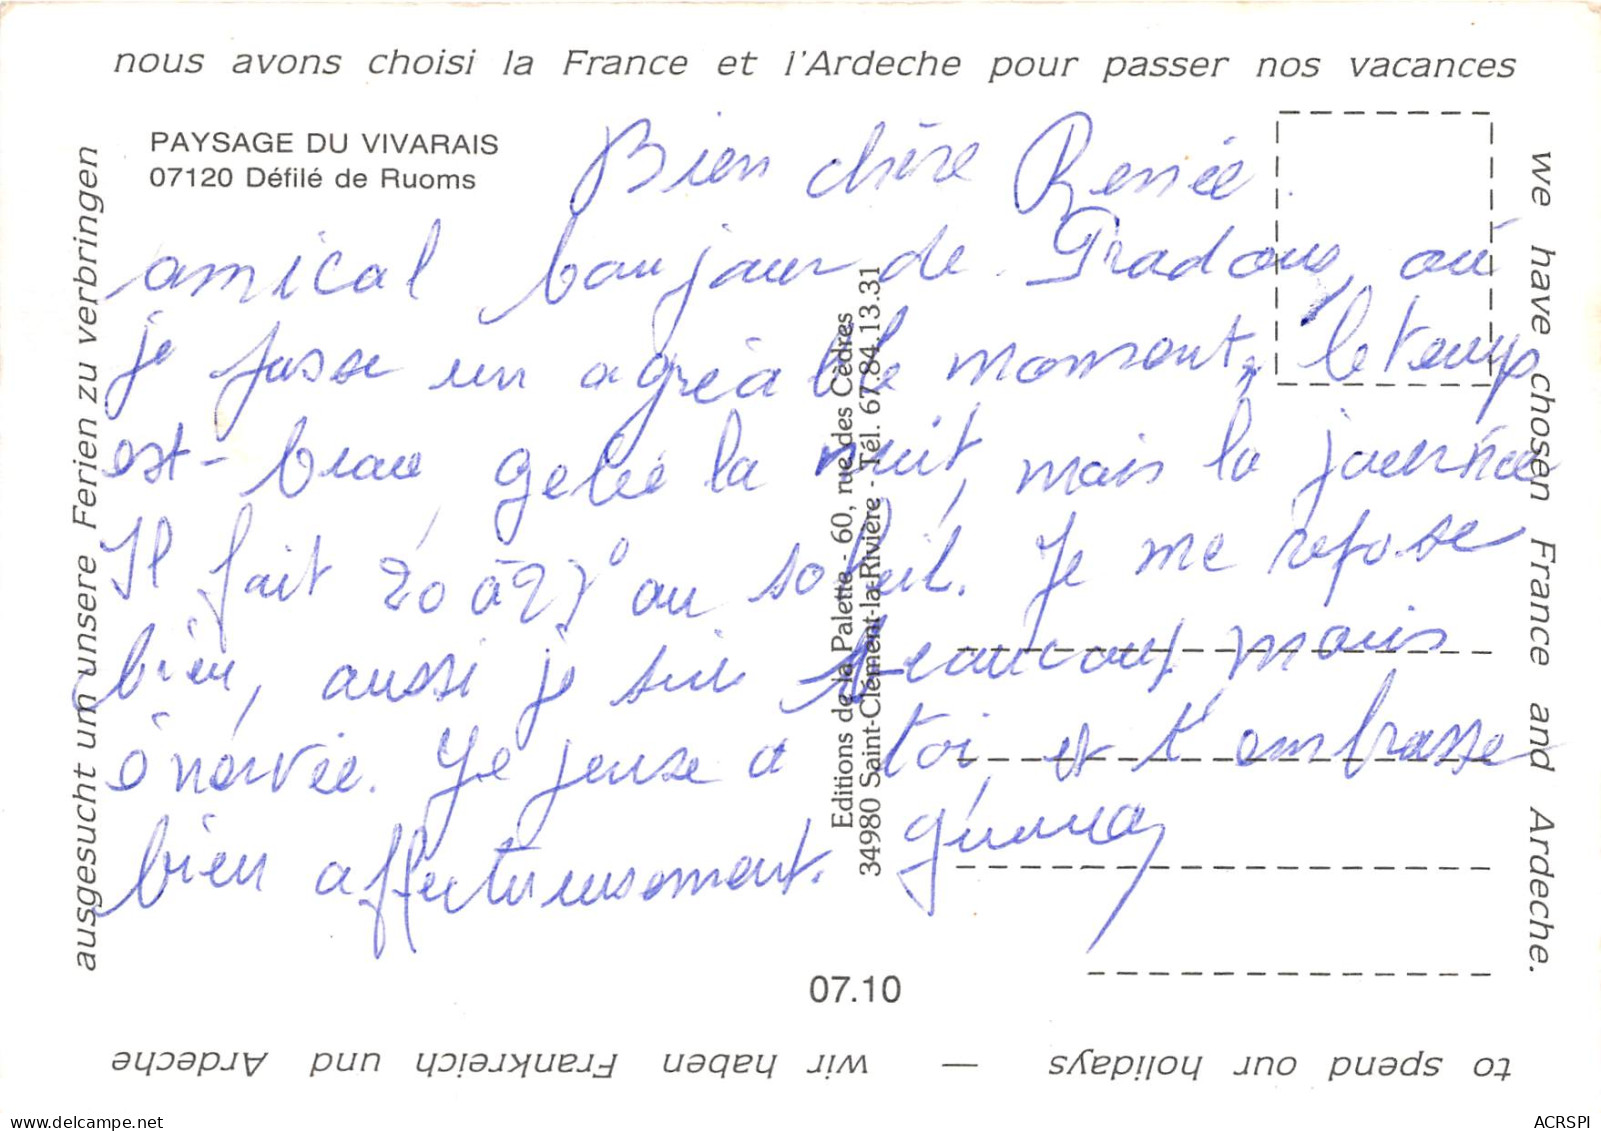 nous avons choisi la France et l'Ardeche pour passer nos vacances
PAYSAGE DU VIVARAIS
07120 Défilé de Ruoms
Bien chère Renée.
amical bonjour de Pradons, où
je passe un agréable moment, le temps
est beau, gelée la nuit, mais la journée
Il fait 20 à 25° au soleil. Je me repose
bien, aussi je suis beaucoup mais
énervée. Je pense à toi, et t'embrasse
bien affectueusement.
Editions de la Palette - 60, rue des Cèdres
34980 Saint-Clément-la-Rivière - Tél. 67.84.13.31
07.10
we have chosen France and Ardeche.
to spend our holidays — wir haben Frankreich und Ardeche
ausgesucht um unsere Ferien zu verbringen
www.delcampe.net
ACRSPI